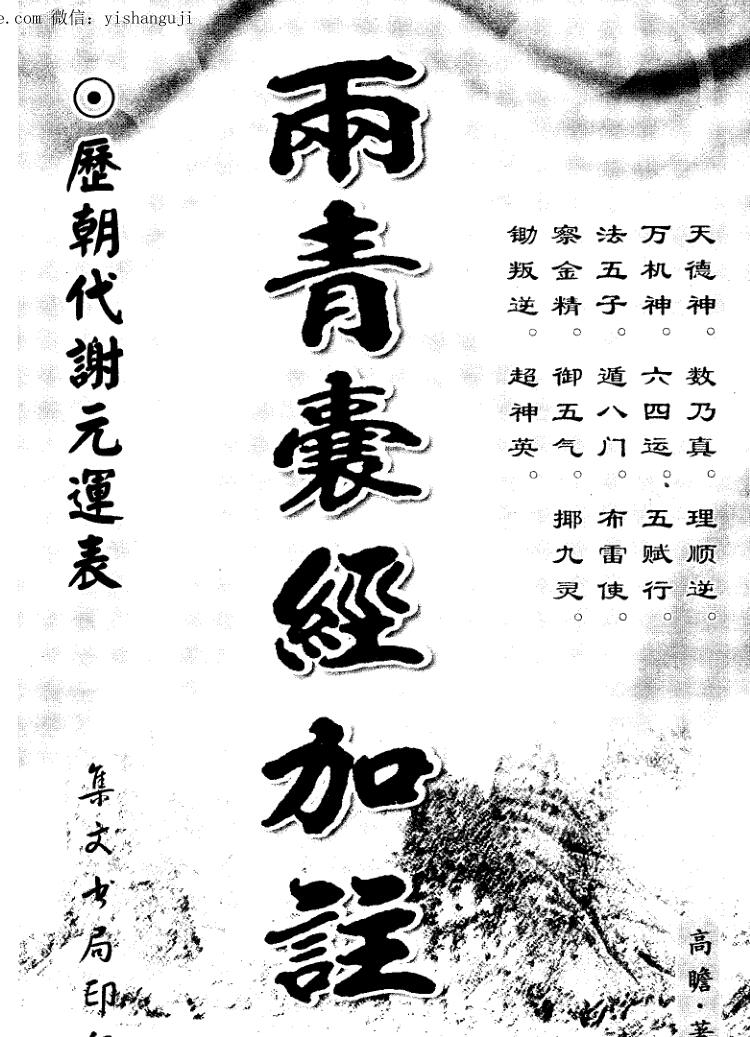 e.com 微信：yishanguji
天德神。数乃真。理顺逆。
万机神。六四运、五赋行。
法五子。遁八门。布雷使。
察金精。御五气。揶九灵。
锄叛逆。超神英。
兩青囊經加註
⊙歷朝代謝元運表
高瞻·著
集文书局印